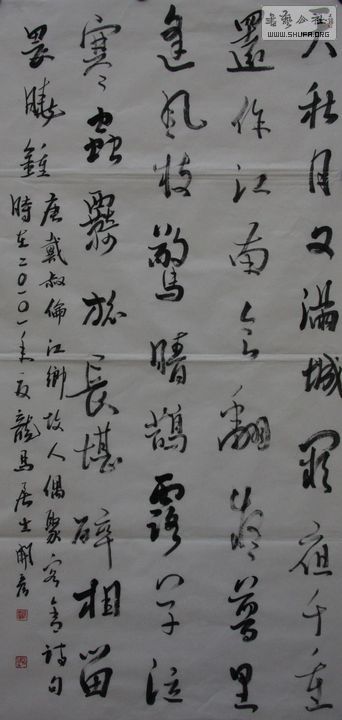 書藝公社
WWW.SHUFA.ORG
天秋月又滿城闕夜千重
還作江南會翻疑夢里
逢風枝驚暗鵲露草泣
寒蟲羈旅長堪醉相留
畏曉鍾
唐戴叔倫江鄉故人偶聚客舍詩句
時在二〇 年夏龍馬居士